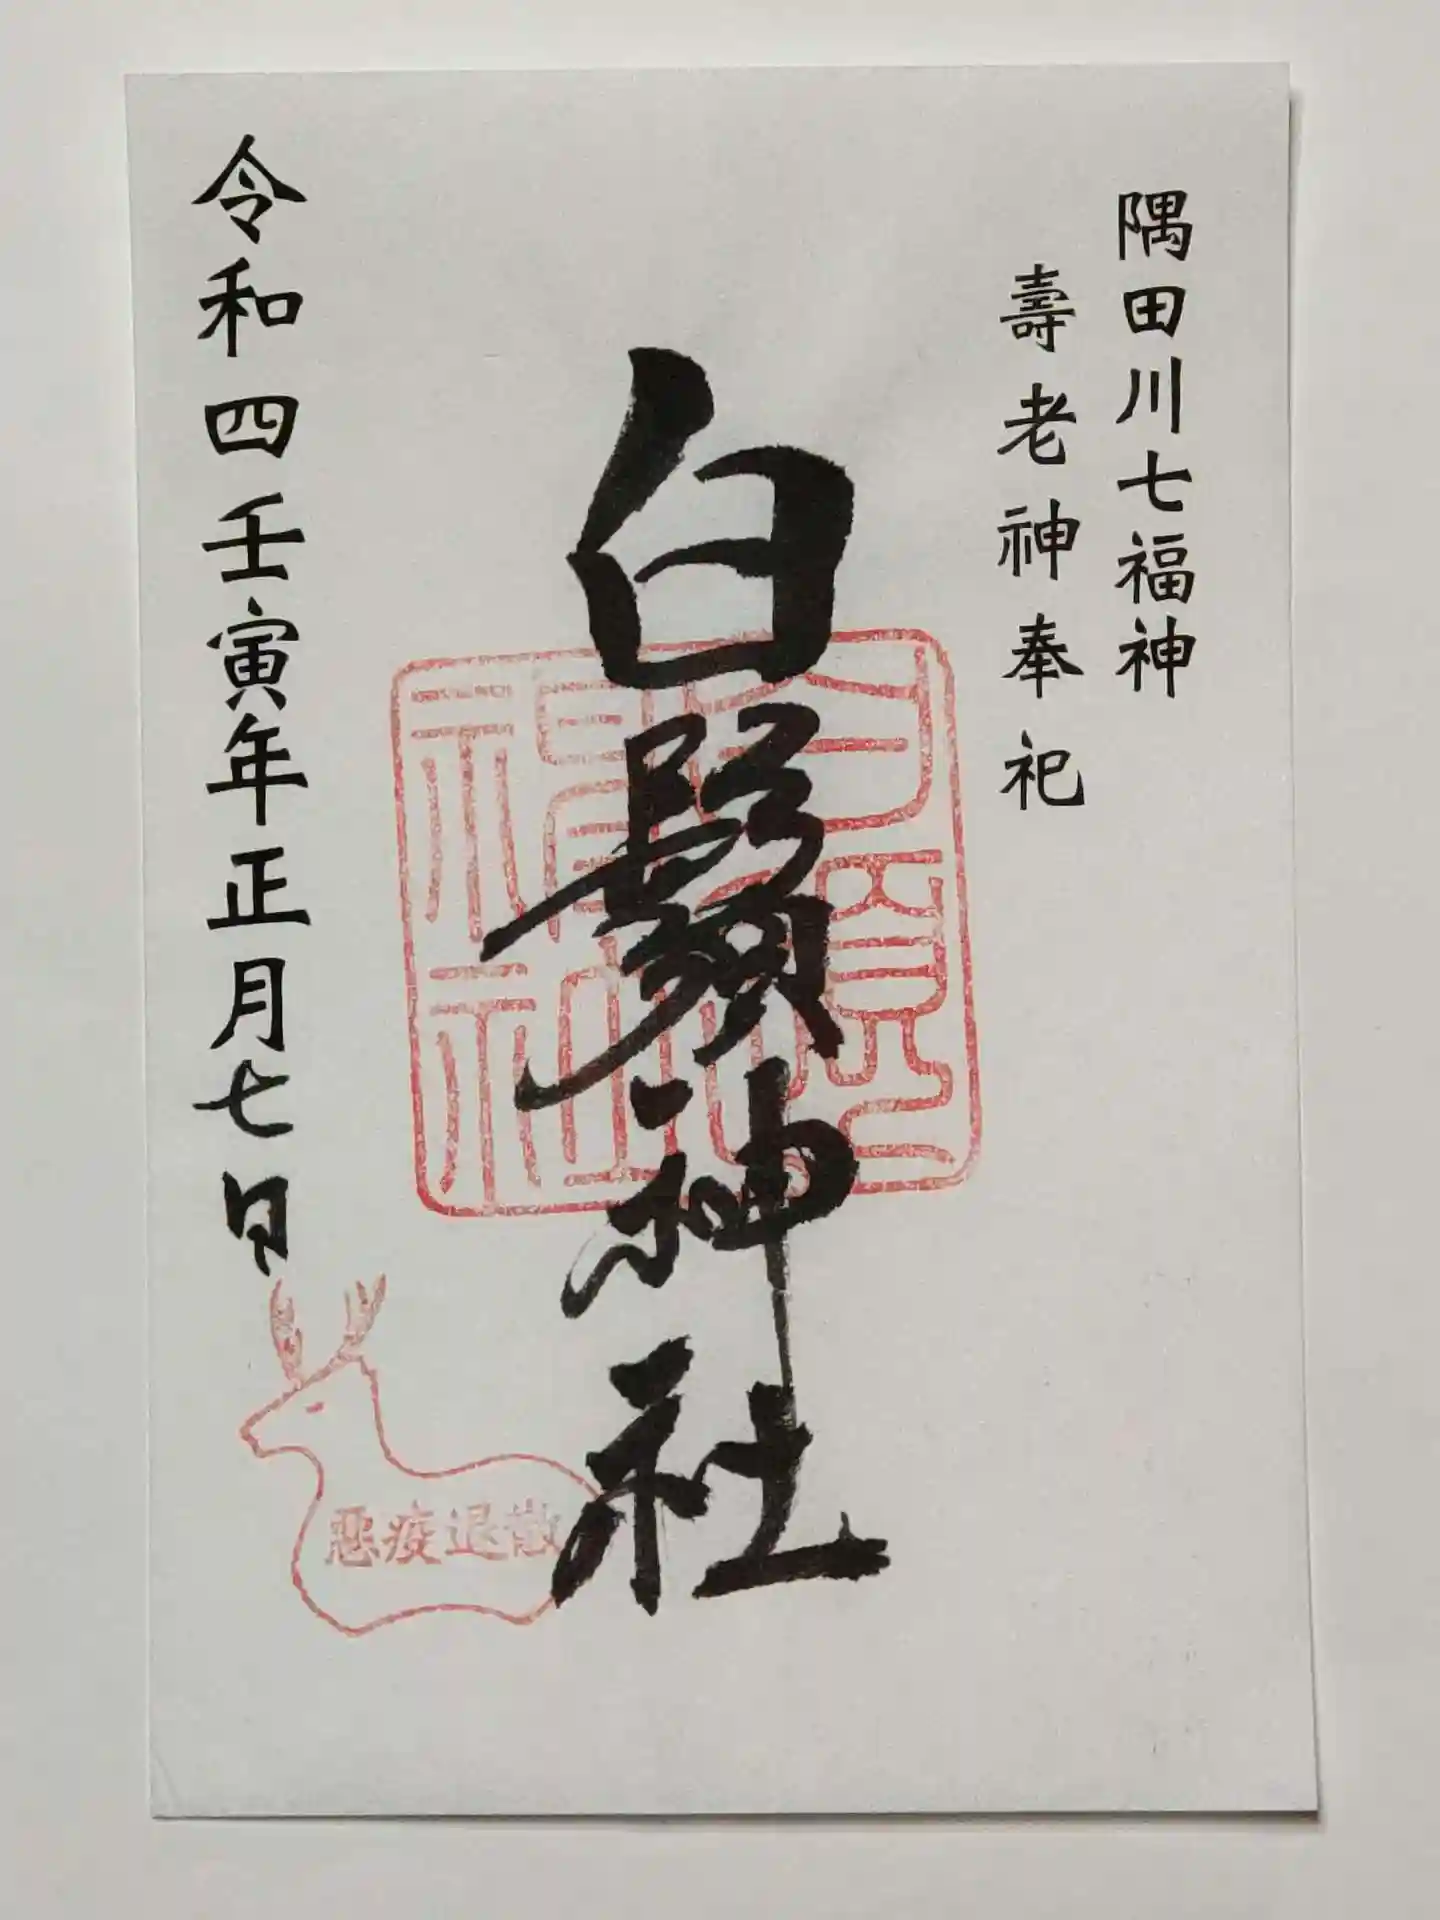 隅田川七福神
壽老神奉祀
白鬚神社
令和四壬寅年正月七日
悪疫退散